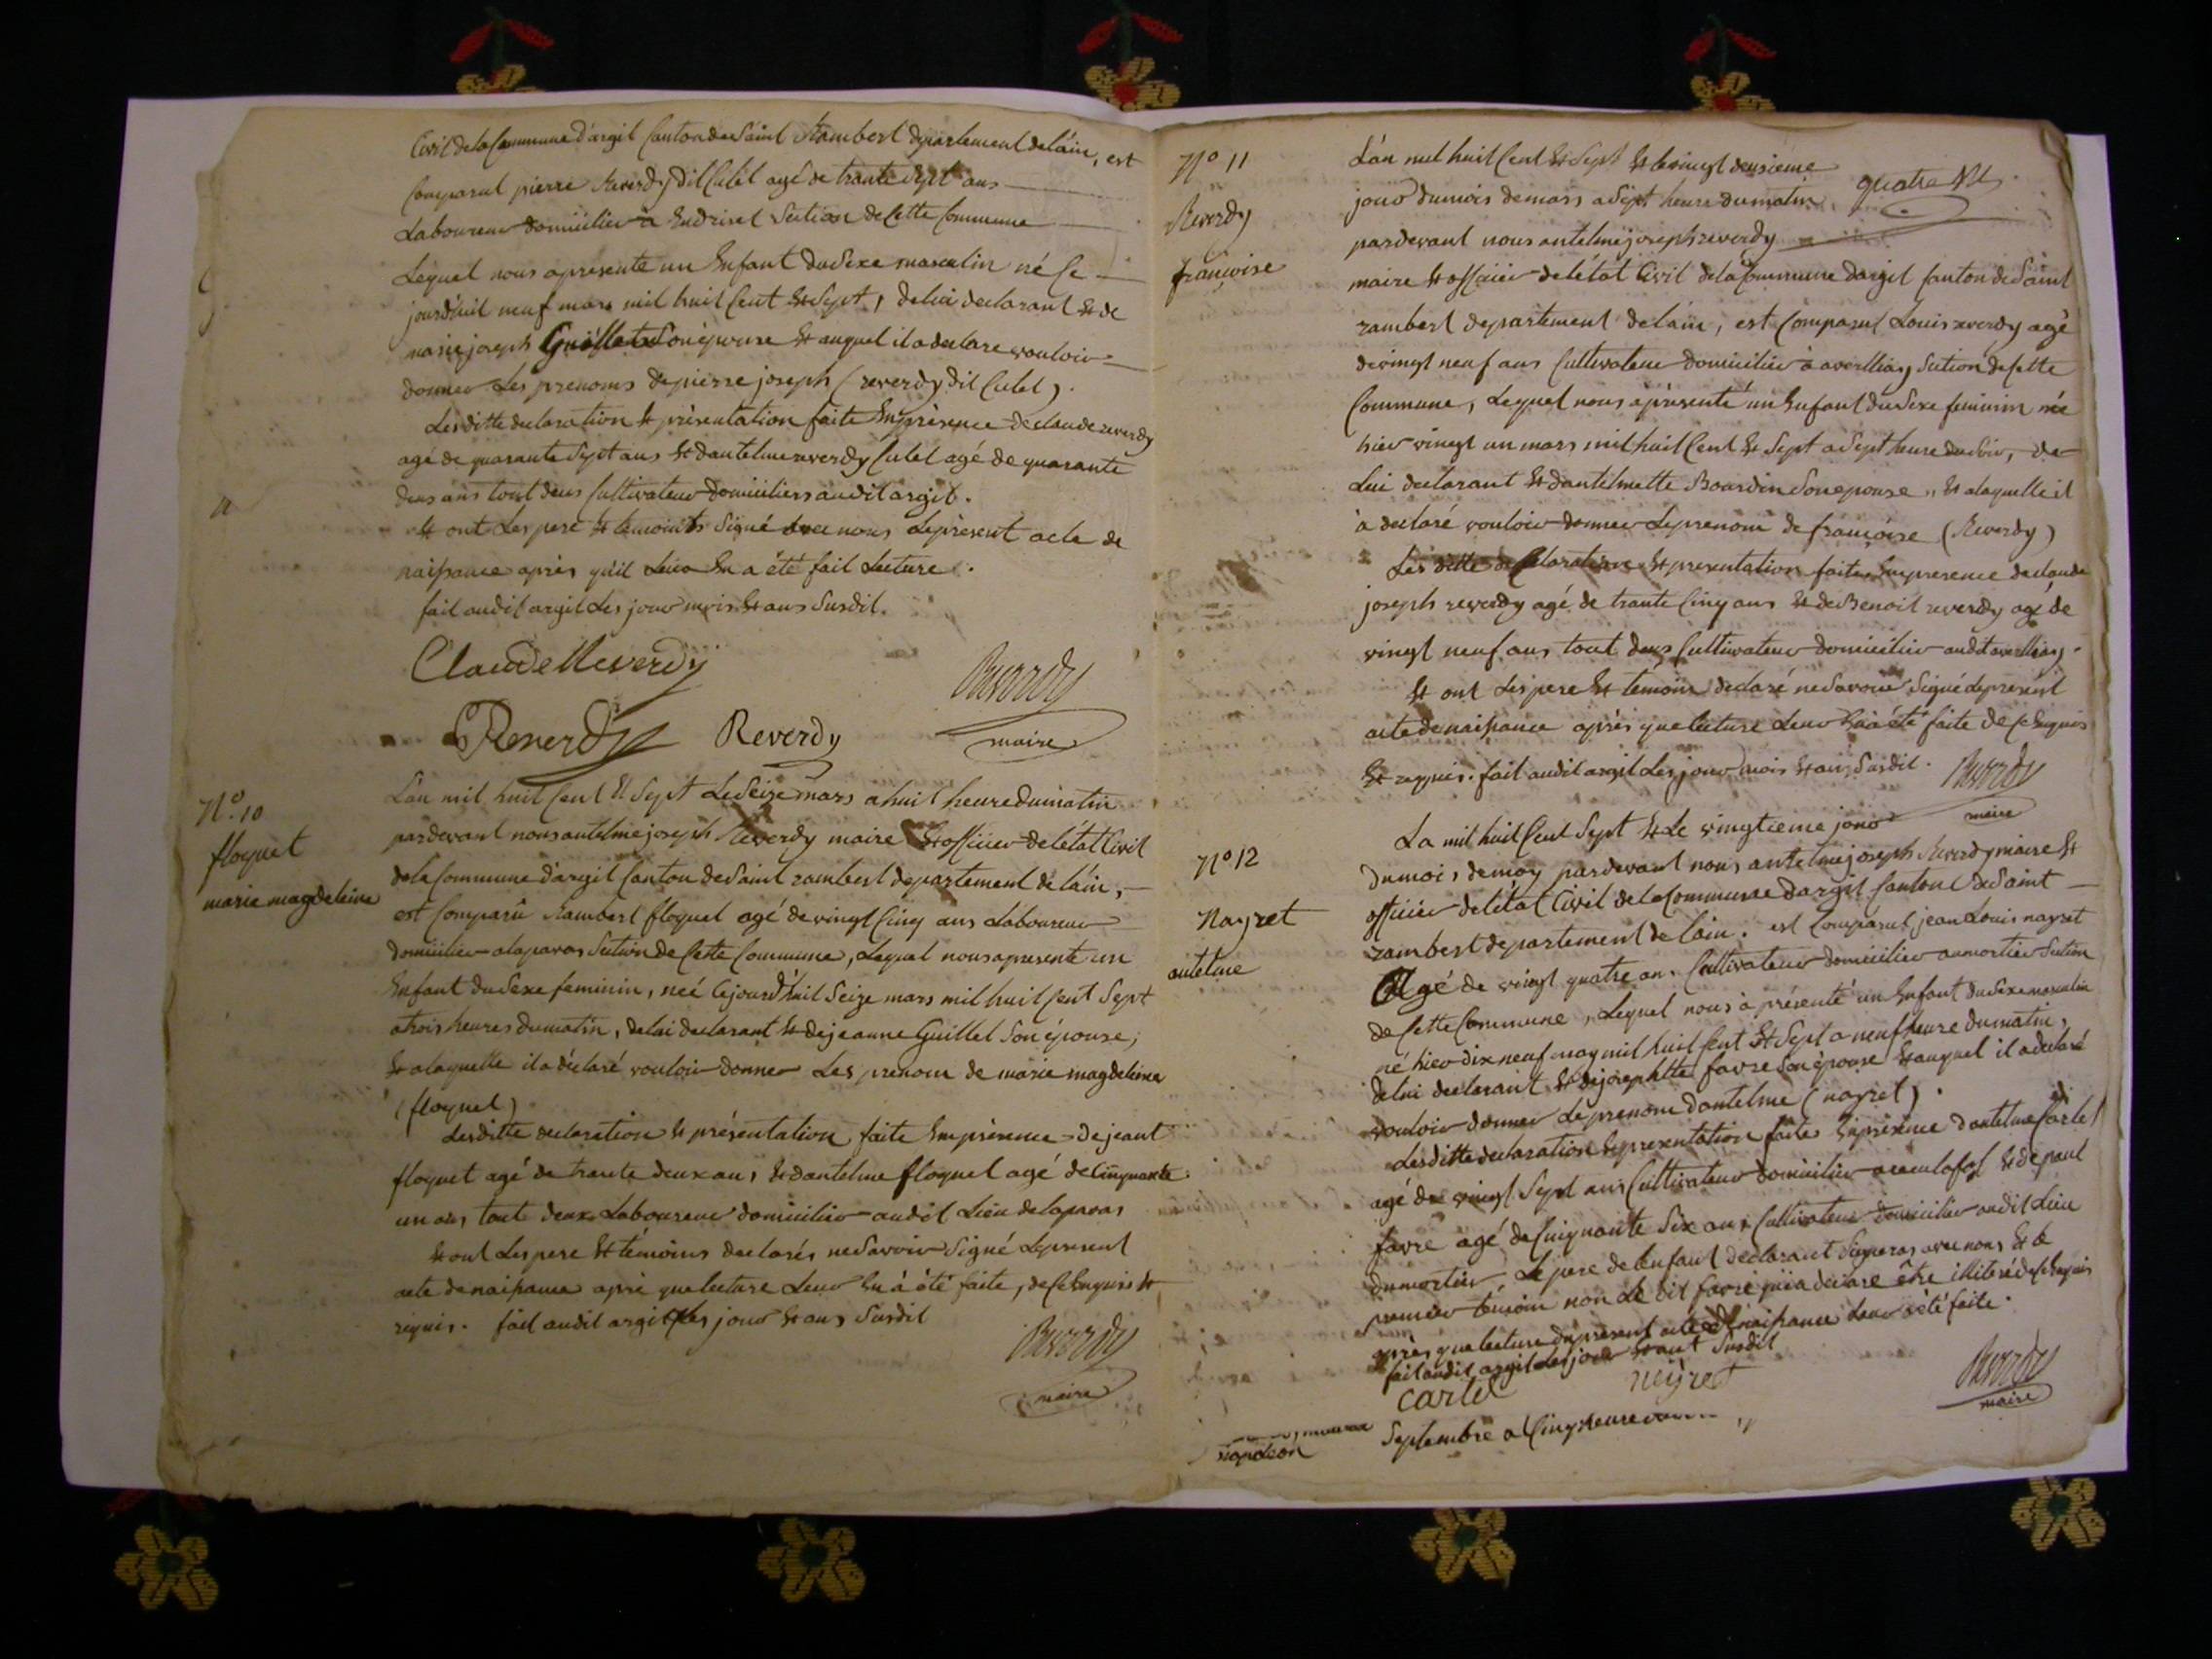 Civil de la Commune d'argil Canton de Saint Rambert departement de láin, est
Comparut pierre Reverdy dit Culet agé de trante sept ans
Laboureur domicilier a Endrisel Section de Cette Commune
Lequel nous apresenté un Enfant du Sexe masculin né Ce
jourd'huil neuf mars mil huil Cent & Sept, de lui declarant & de
marie joseph Guillet Son épouse & auquel il a declare vouloir
donner Les prenoms de pierre joseph (reverdy dit Culet).
Les ditte declaration & présentation faite En présence de claude reverdy
agé de quarante Sept ans & d'antelme reverdy Culet agé de quarante
deus ans tout deus Cultivateur domiciliers audit argil.
& ont Les pere & temoints Signé avec nous Le présent acte de
naissance après qu'il Leur En a été fail Lecture.
fail audil argil Les jour mois & ans Susdil.
Claude Reverdy
Reverdy
Reverdy
Reverdy
maire
N°. 10
floquet
marie magdeleine
L'an mil huil Cent & Sept Le Seize mars a huit heure du matin
pardevant nous antelme joseph Reverdy maire & officier de létat Civil
de la Commune d'argil Canton de Saint rambert departement de láin,
est Comparû Rambert floquet agé de vingt Cinq ans Laboureur
domicilier a laparas Section de Cette Commune, Lequel nous apresente un
Enfant du Sexe feminin, neé Cejourd'huil Seize mars mil huil Cent Sept
a trois heures du matin, de lui declarant & de jeanne Guillet Son épouse;
& a laquelle il a déclaré vouloir donner Les prenom de marie magdeleine
(floquet)
Les ditte declaration & présentation faite En présence de jeant
floquet agé de trante deux ans & d'antelme floquet agé de Cinquante
un ans tout deux Laboureur domicilier audit Lieu de laparas
& ont Les pere & témoins declarés ne Savoir Signé Le present
acte de naissance aprè que lecture Leur En à été faite, de Ce Enquis &
requis. fail audil argil Les jour & ans Susdil
Reverdy
maire
N° 11
Reverdy
françoise
quatre
L'an mil huil Cent & Sept & le vingt deusieme
jour du mois de mars a Sept heure du matin
pardevant nous antelme joseph reverdy
maire & officier de létat Civil de la Commune d'argil Canton de Saint
rambert departement de láin, est Comparut Louis reverdy agé
de vingt neuf ans Cultivateur domicilier a averlliay Section de Cette
Commune, Lequel nous à présenté un Enfant du Sexe feminin née
hier vingt un mars mil huil Cent & Sept a Sept heure du Soir, de
Lui declarant & d'antelmette Bourdin Son epouse, & a laquelle il
à declaré vouloir donner Le prenom de françoise (Reverdy)
Les ditte declaration & presentation faites En presence de claude
joseph reverdy agé de trante Cinq ans & de Benoit reverdy agé de
vingt neuf ans tout deus Cultivateur domicilier audit averlliay.
& ont Les pere & témoins declaré ne Savoir Signé Le présent
acte de naissance après que lecture Leur En a été faite de Ce Enquis
& requis. fail audil argil Les jour mois & ans Susdil.
Reverdy
maire
N° 12
Nayret
antelme
La mil huil Cent Sept & Le vingtieme jour
du mois de may pardevant nous antelme joseph Reverdy maire &
officier de létat Civil de la Commune d'argil Canton de Saint
rambert departement de láin. est Comparut jean Louis nayret
Agé de vingt quatre an. Cultivateur domicilier au mortier Section
de Cette Commune, Lequel nous à présenté un Enfant du Sexe masculin
né hier dix neuf may mil huil Cent & Sept a neuf heure du matin,
de lui declarant & de josephtte favre Son épouse & auquel il a declaré
vouloir donner Le prenom d'antelme (nayret).
Les ditte declaration & presentation faites En présence d'antelme Carlet
agé de vingt Sept ans Cultivateur domicilier & de paul
favre agé de Cinquante Six ans Cultivateur domicilier audit Lieu
du mortier. Le pere de Lenfant declarant Signeras avec nous & le
premier témoin non Le dit favre qui a declare être illiteré de Ce Enquis
après que lecture du présent acte de naissance Leur a été faite.
fait audit argil Les jour & ant Susdit
Carlet
neyret
Reverdy
maire
napoleon
Septembre a Cinq heure